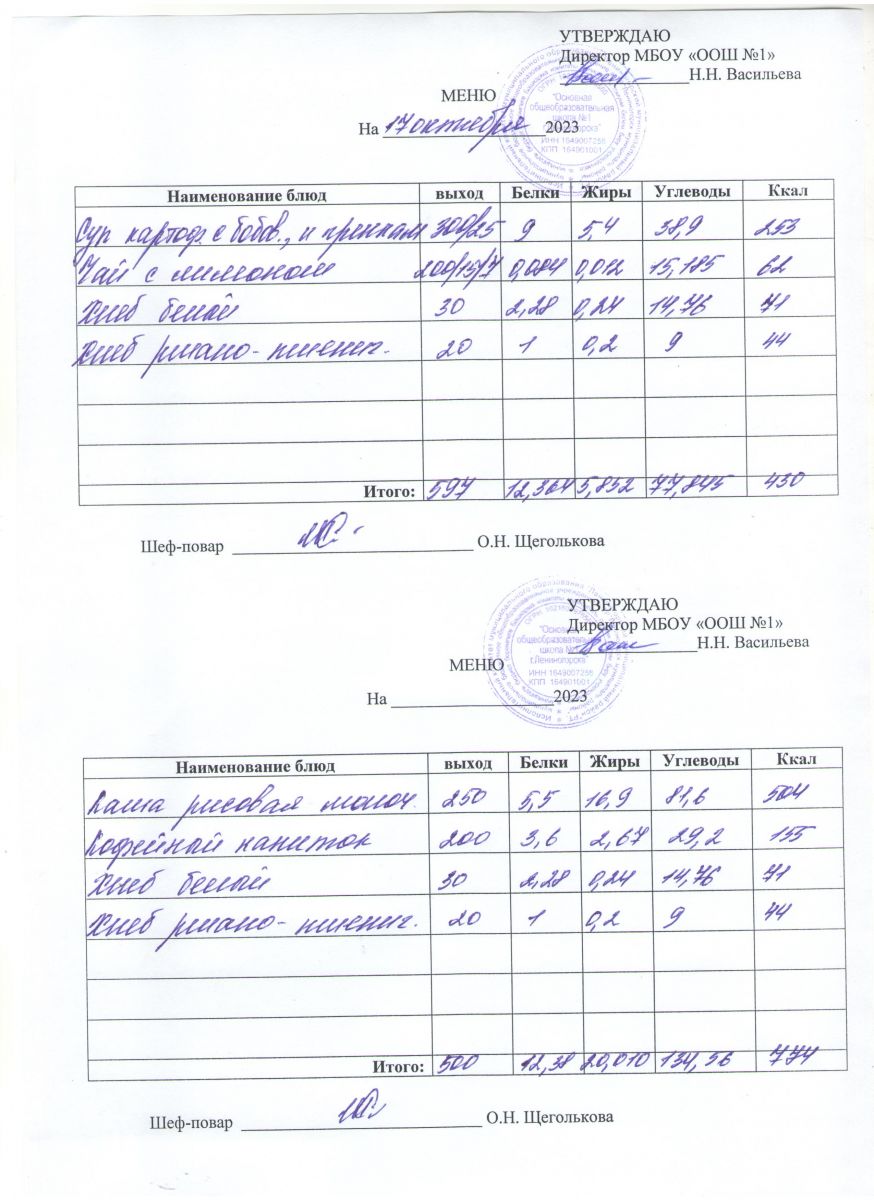 УТВЕРЖДАЮ
Директор МБОУ «ООШ №1»
Н.Н. Васильева
МЕНЮ
На 17 октября 2023
"Основная
общеобразовательная
школа №1
ИНН 1649007256
КПП 164901001
Наименование блюд выход Белки Жиры Углеводы Ккал
Суп картоф. с бобов., и гренкам 300/25 9 5,4 38,9 253
Чай с лимоном 200/15/7 0,084 0,012 15,185 62
Хлеб белый 30 2,28 0,24 14,76 71
Хлеб ржано-пшенич. 20 1 0,2 9 44
Итого: 597 12,364 5,852 77,845 430
Шеф-повар О.Н. Щеголькова
УТВЕРЖДАЮ
Директор МБОУ «ООШ №1»
Н.Н. Васильева
МЕНЮ
На 2023
общеобразовательная
школа №1
г.Лениногорска"
ИНН 1649007256
КПП 164901001
Наименование блюд выход Белки Жиры Углеводы Ккал
Каша рисовая молоч. 250 5,5 16,9 81,6 504
Кофейный напиток 200 3,6 2,67 29,2 155
Хлеб белый 30 2,28 0,24 14,76 71
Хлеб ржано-пшенич. 20 1 0,2 9 44
Итого: 500 12,38 20,010 134,56 774
Шеф-повар О.Н. Щеголькова